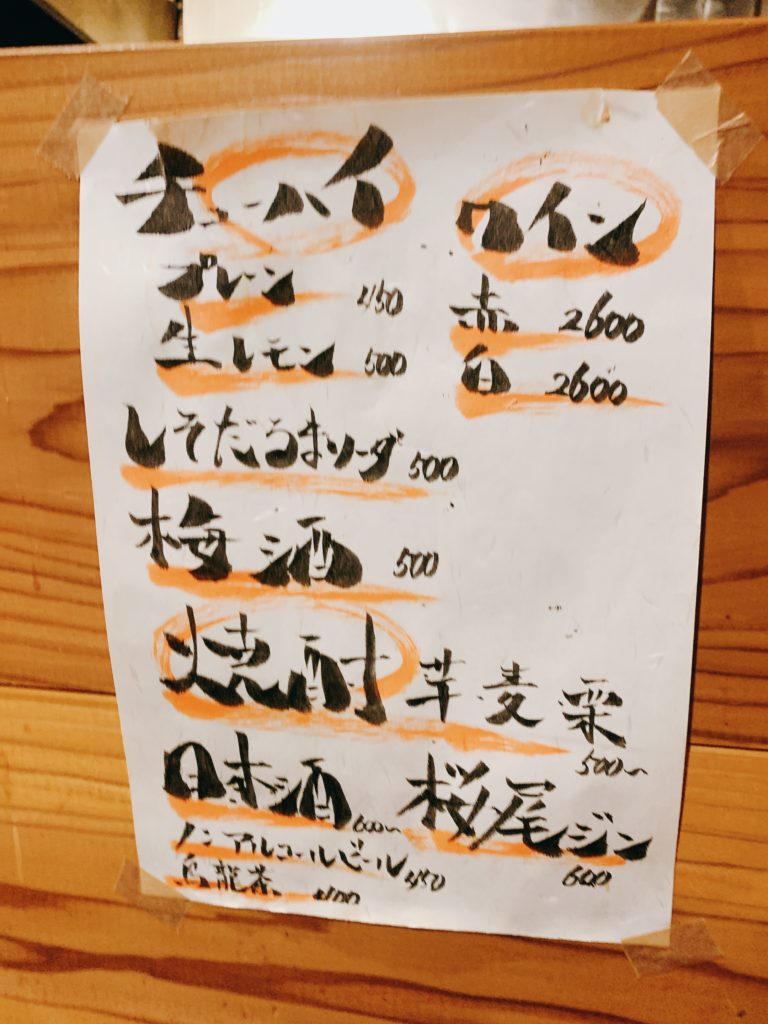 チューハイ
プレーン 450
生レモン 500
しそだるまソーダ 500
梅酒 500
ワイン
赤 2600
白 2600
焼酎 芋 麦 栗
500〜
日本酒 600〜
桜尾ジン 600
ノンアルコールビール 450
烏龍茶 400